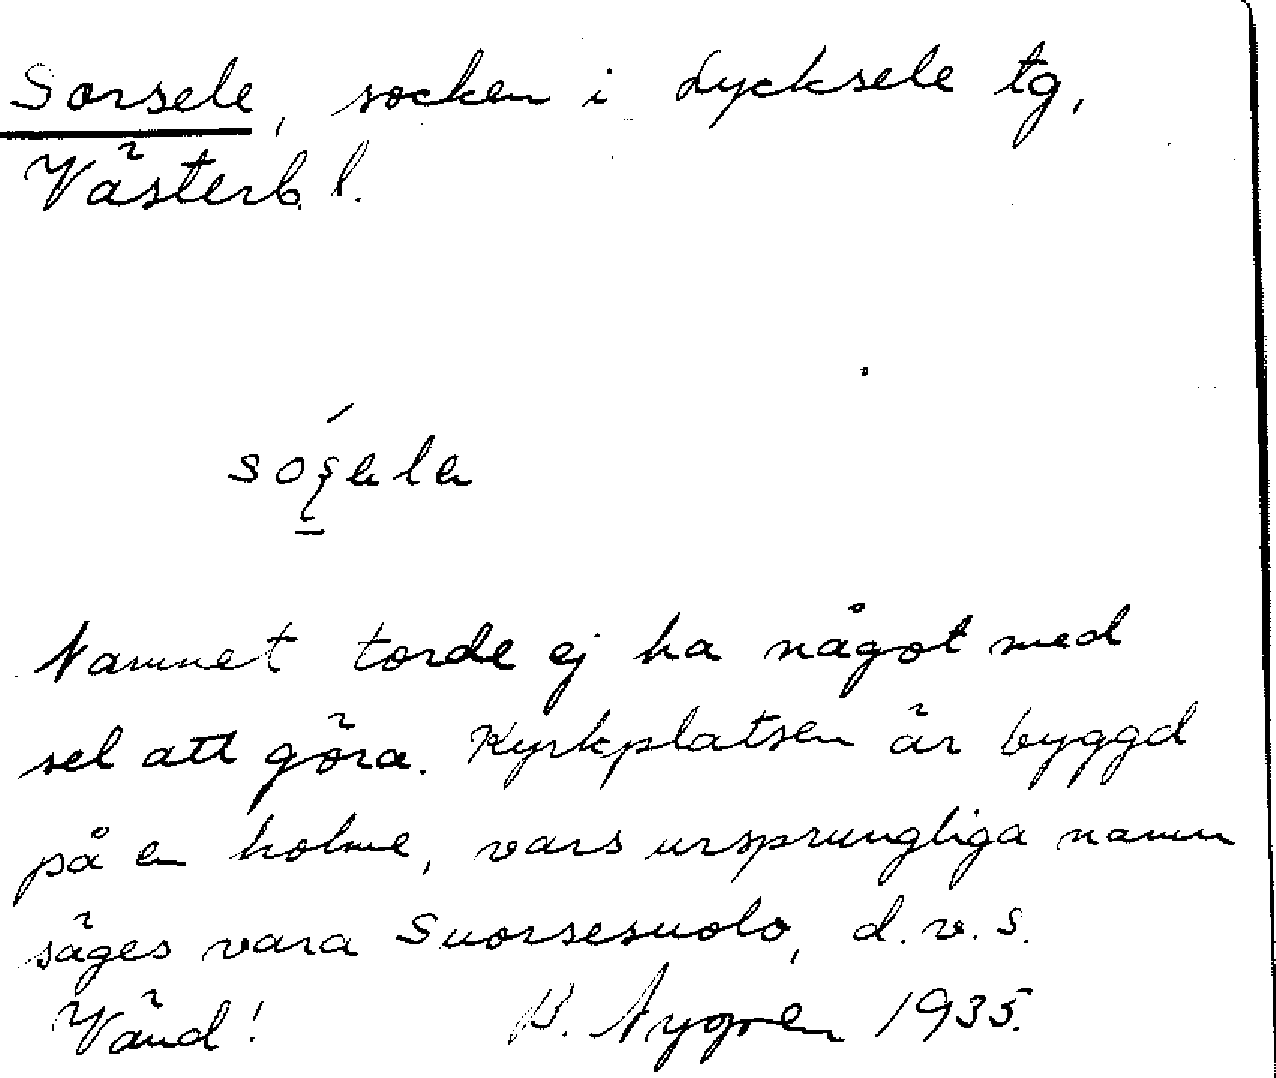 Sorsele, socken i Lycksele tg,
Västerb. l.
Namnet torde ej ha något med
sel att göra. Kyrkplatsen är byggd
på en holme, vars ursprungliga namn
säges vara Suorsesuolo, d.v.s.
Vänd! H. Nygren 1935.